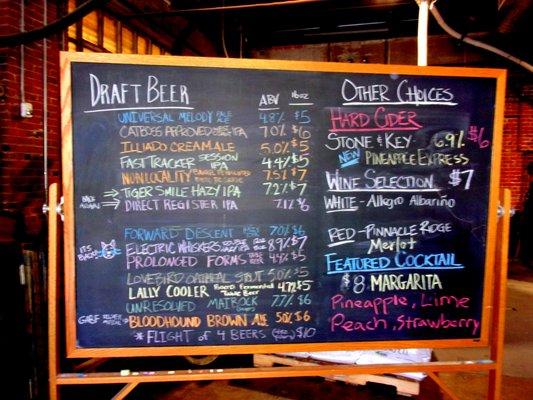 DRAFT BEER ABV 16oz
UNIVERSAL MELODY 4.8% $5
CATBOSS APPROVED IPA 7.0% $6
ILLIAD CREAM ALE 5.0% $5
FAST TRACKER SESSION IPA 4.4% $5
NONLOCALITY 7.5% $7
TIGER SMILE HAZY IPA 7.2% $7
DIRECT REGISTER IPA 7.1% $6
FORWARD DESCENT 7.0% $6
IT'S BACK! ELECTRIC WHISKERS 8.9% $7
PROLONGED FORMS 4.9% $5
LOVEBIRD OATMEAL STOUT 5.0% $5
LALLY COOLER TABLE BEER 4.7% $5
UNRESOLVED MATROCK 7.7% $6
GABF SILVER MEDAL BLOODHOUND BROWN ALE 5.0% $6
* FLIGHT OF 4 BEERS $10
OTHER CHOICES
HARD CIDER
STONE & KEY 6.9% $6
NEW PINEAPPLE EXPRESS
WINE SELECTION $7
WHITE - Allegro Albariño
RED - PINNACLE RIDGE
Merlot
FEATURED COCKTAIL
$8 MARGARITA
Pineapple, Lime
Peach, Strawberry